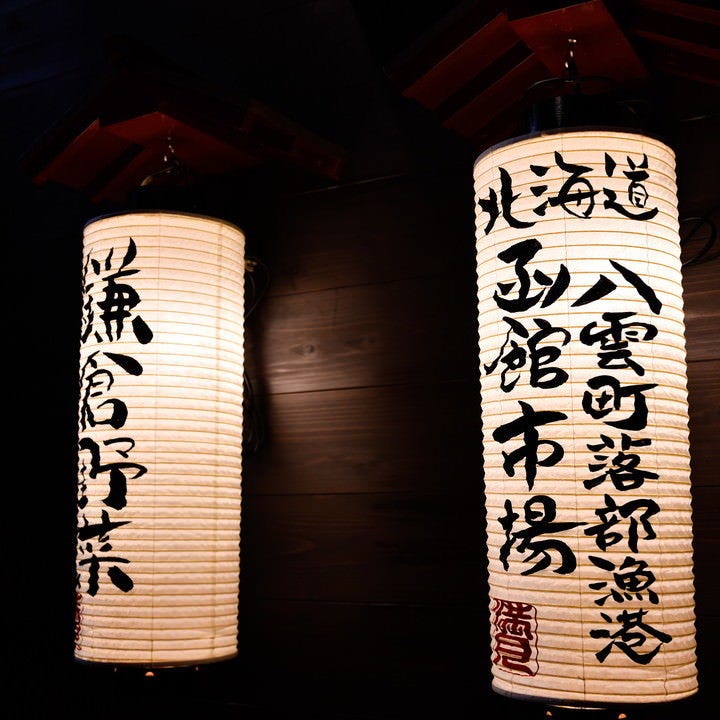 鎌倉野菜
北海道
八雲町落部漁港
函館市場